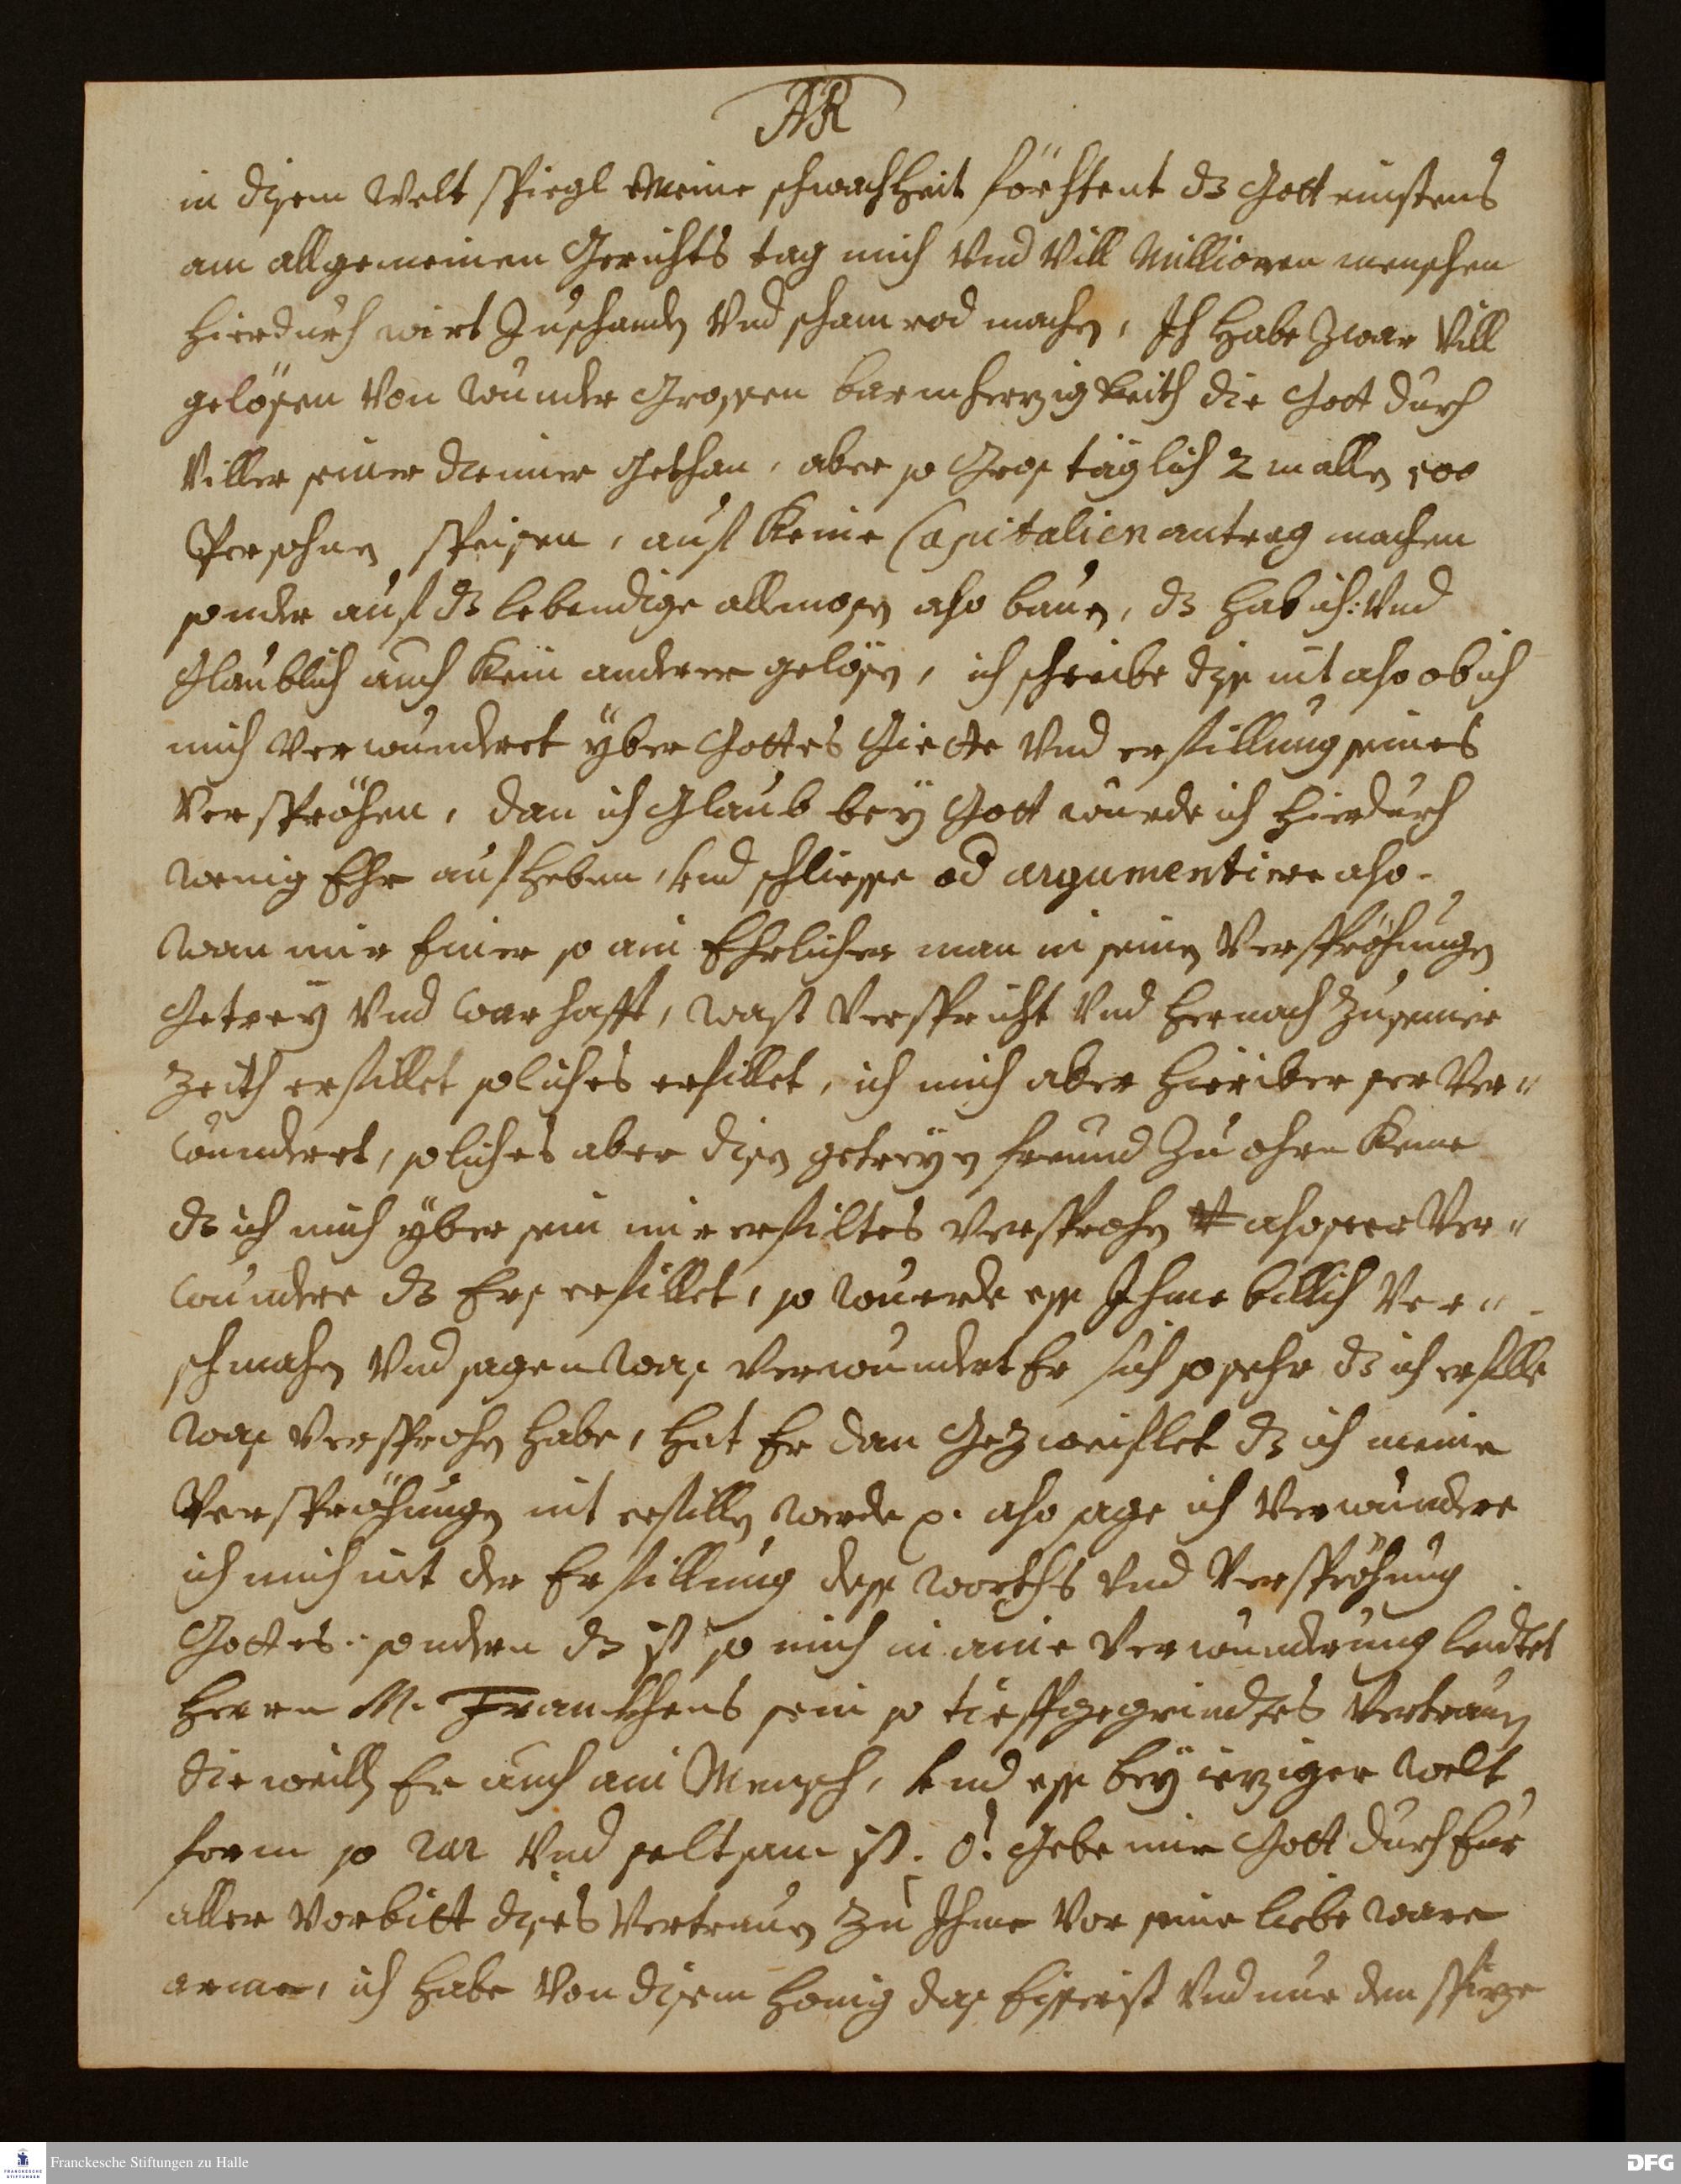 AR
in disem Welt spiegl meine schwachheit förchtent dz Gott einstens
am allgemeinen Gerichts tag mich Vnd Vill Millionen menschen
hierdurch wirt Zuschanden Vnd scham rod machen, Ich habe Zwar Vill
gelösen Von wunder Grossen barmherzigkeith die Gott durch
Viller seiner diener Gethan, aber so Gros täglich 2 mallen 500
Persohnen speisen, auf Keine Capitalien antrag machen
sonder auf dz lebendige allmosen also bauen, dz hab ich: Vnd
Glaublich auch Kein anderer gelösen, ich schreibe dise nit also ob ich
mich Verwunderet yber Gottes Giette Vnd erfillung seines
Verspröhen, dan ich Glaub bey Gott wurde ich hierdurch
wenig Ehr aufheben, Vnd schliesse od argumentiere also.
wan mir Einer so ain Ehrlicher man in seinen Verspröhungen
Getrey Vnd warhafft, wast Verspricht Vnd hernach Zu seiner
Zeith erfillet soliches erfillet, ich mich aber hieriber ser Ver-
wunderet, soliches aber disen getreyen freund Zu ohren Keme
dz ich mich yber sein mir erfiltes Versprochen also ser Ver-
wundere dz Ers erfillet, so wuerde ess Ihme billich Ver-
schmahen Vnd sagen was verwundert Er sich so sehr dz ich erfille
was Versprochen habe, hat Er dan Gezweiflet dz ich meine
Verspröhungen nit erfillen werde p. also sage ich Verwundere
ich mich nit der Erfillung dess worths Vnd Verspröhung
Gottes. sondern dz ist so mich in aine Verwunderung leidtet
Herrn M. Franckhens sein so tieffgegrindtes Vertrauen
die weillen Er auch ain Mensch, Vnd ess bey iezziger welt
form so rar Vnd seltsam ist. O! Gebe mir Gott durch Eur
aller Vorbitt dises Vertrauen Zu Ihme Vor seine liebe ware
arme, ich habe Von disem honig das Eisserist Vnd nur den spize
Franckesche Stiftungen zu Halle
DFG